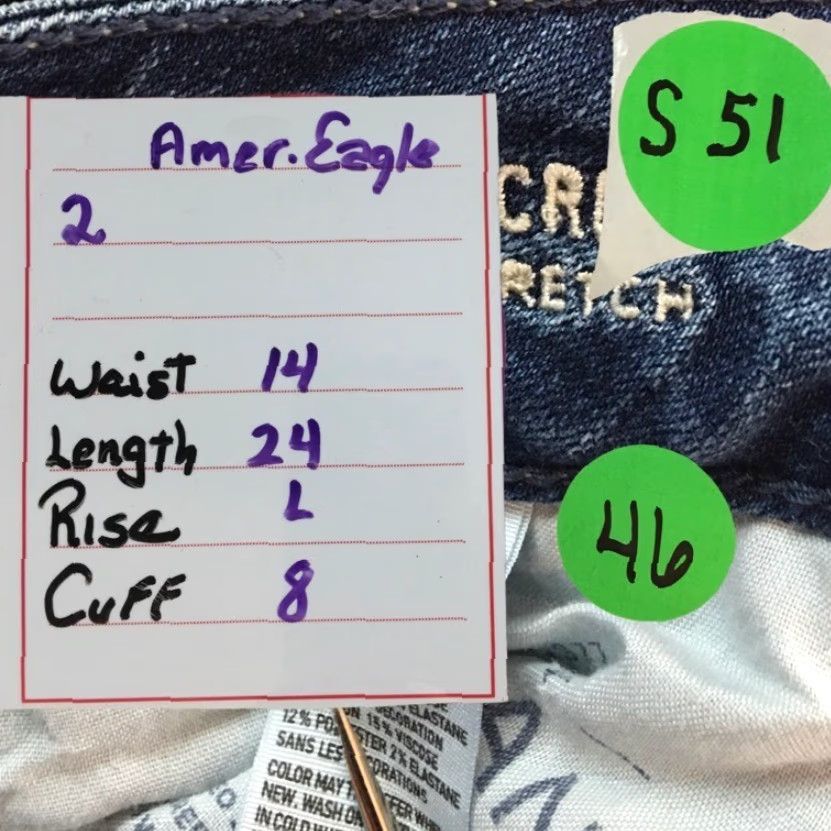 Amer. Eagle
2
Waist 14
Length 24
Rise L
Cuff 8
S 51
CR
RETCH
46
ELASTANE
12% PO STER 2% ELASTANE
15% VISCOSE
SANS LES CORATIONS
COLOR MAY T FER WH
NEW. WASH ON
IN COLD W